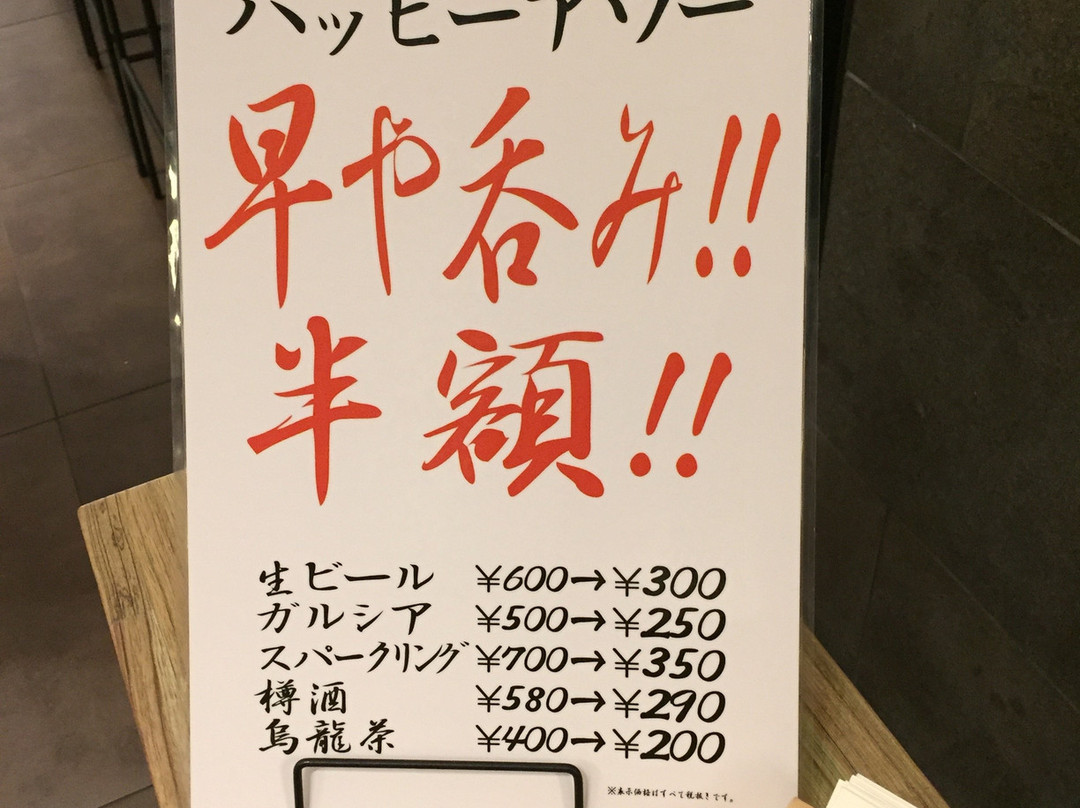 ハッピーアワー
早や呑み!!
半額!!
生ビール ¥600→¥300
ガルシア ¥500→¥250
スパークリング ¥700→¥350
樽酒 ¥580→¥290
烏龍茶 ¥400→¥200
※表示価格はすべて税抜きです。